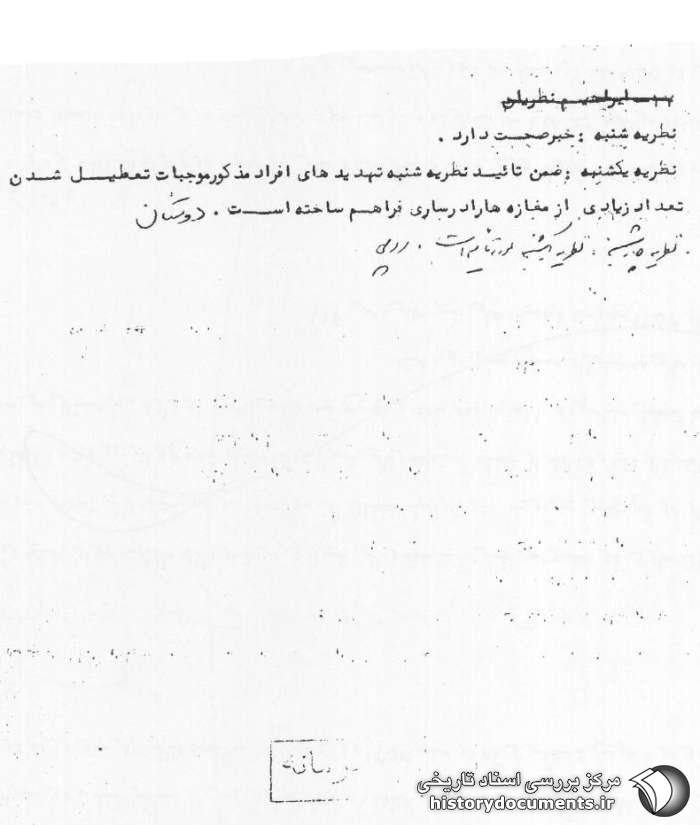 ۲۲ـ ابراهیم نظریان
نظریه شنبه : خبرصحت دارد .
نظریه یکشنبه : ضمن تائید نظریه شنبه تهدید های افراد مذکورموجبات تعطیل شدن
تعداد زیادی از مغازه هارادرساری فراهم ساخته است . دوستان
نظریه چهارشنبه : نظریه یکشنبه مورد تائید است .
مرکز بررسی اسناد تاریخی
historydocuments.ir